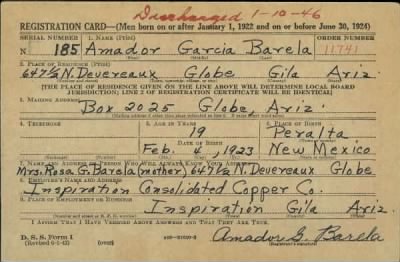 Discharged 1-10-46
REGISTRATION CARD—(Men born on or after January 1, 1922 and on or before June 30, 1924)
SERIAL NUMBER 1. NAME (Print) ORDER NUMBER
N 185 Amador Garcia Barela 11741
(First) (Middle) (Last)
2. PLACE OF RESIDENCE (Print)
647½ N. Devereaux Globe Gila Ariz.
(Number and street) (Town, township, village, or city) (County) (State)
[THE PLACE OF RESIDENCE GIVEN ON THE LINE ABOVE WILL DETERMINE LOCAL BOARD
JURISDICTION; LINE 2 OF REGISTRATION CERTIFICATE WILL BE IDENTICAL]
3. MAILING ADDRESS
Box 2025 Globe, Ariz.
4. TELEPHONE 5. AGE IN YEARS 6. PLACE OF BIRTH
19 Peralta
DATE OF BIRTH
Feb. 4, 1923 New Mexico
7. NAME AND ADDRESS OF PERSON WHO WILL ALWAYS KNOW YOUR ADDRESS
Mrs. Rosa G. Barela (mother) 647½ N. Devereaux Globe
8. EMPLOYER'S NAME AND ADDRESS
Inspiration Consolidated Copper Co.
9. PLACE OF EMPLOYMENT OR BUSINESS
Inspiration Gila Ariz.
I AFFIRM THAT I HAVE VERIFIED ABOVE ANSWERS AND THAT THEY ARE TRUE.
D. S. S. Form 1
(Revised 6-1-42) (over)
Amador G. Barela